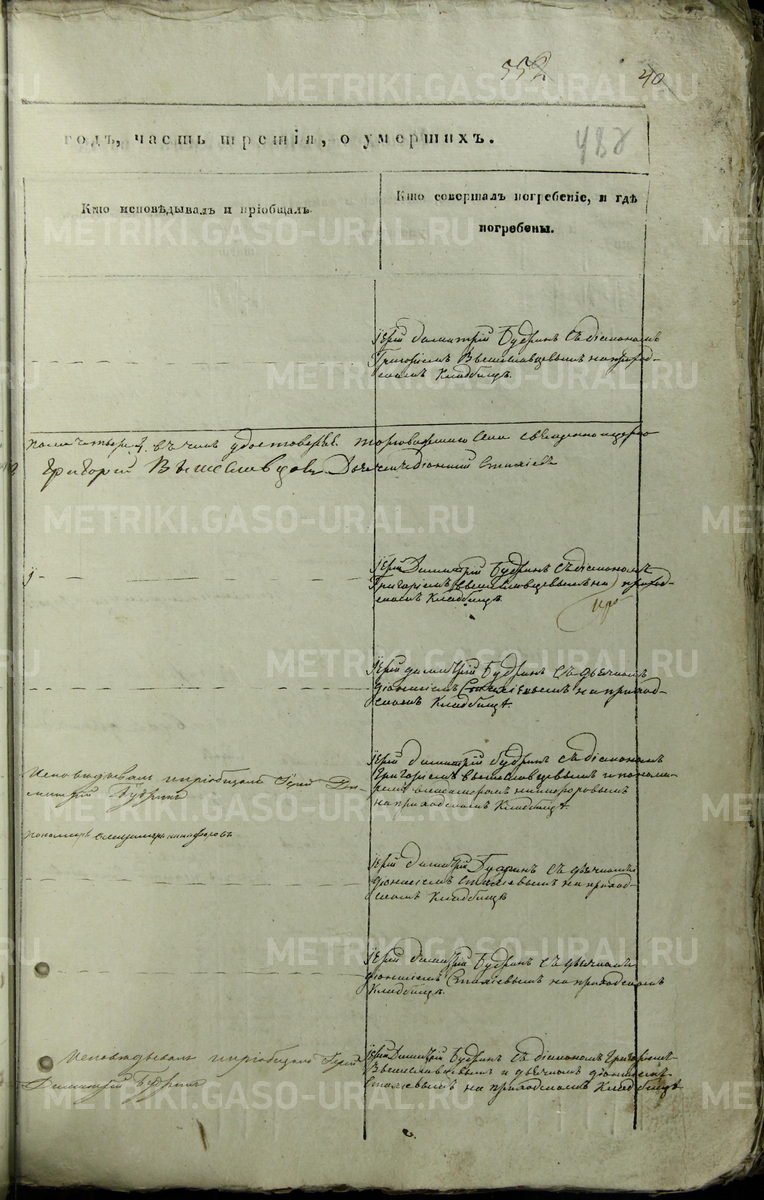 552
40
годъ, часть третія, о умершихъ.
482
Кто исповѣдывалъ и пріобщалъ
Кто совершалъ погребеніе, и гдѣ
погребены.
Іерій Димитрій Будринъ съ діакономъ
Григоріемъ Вышеславцевымъ на приход-
скомъ Кладбищѣ.
въ чемъ удостовѣр.
Григорій Вышеславцовъ Дьячекъ Діонисій Стахіевъ
Іерій Димитрій Будринъ съ діакономъ
Григоріемъ Вышеславцевымъ на приход-
скомъ Кладбищѣ.
Іерій Димитрій Будринъ съ дьячкомъ
Діонисіемъ Стахіевымъ на приход-
скомъ Кладбищѣ.
Исповѣдывалъ и пріобщалъ Іерій Ди-
митрій Будринъ
Іерій Димитрій Будринъ съ діакономъ
Григоріемъ Вышеславцевымъ и понома-
ремъ
на приходскомъ Кладбищѣ.
пономарь
Іерій Димитрій Будринъ съ дьячкомъ
Діонисіемъ Стахіевымъ на приход-
скомъ Кладбищѣ
Іерій Димитрій Будринъ съ дьячкомъ
Діонисіемъ Стахіевымъ на приходскомъ
Кладбищѣ.
Исповѣдывалъ и пріобщалъ Іерій
Димитрій Будринъ
Іерій Димитрій Будринъ съ діакономъ Григоріемъ
Вышеславцевымъ и дьячкомъ Діонисіемъ
Стахіевымъ на приходскомъ Кладбищѣ
METRIKI.GASO-URAL.RU